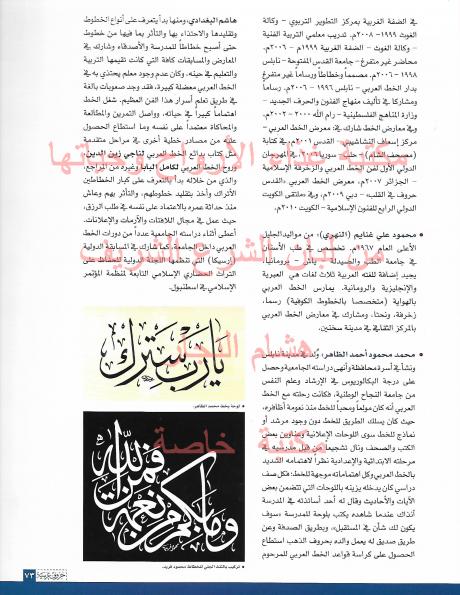 في الضفة الغربية بمركز التطوير التربوي - وكالة
الغوث ١٩٩٩-٢٠٠٨م. تدريب معلمي التربية الفنية
- وكالة الغوث - الضفة الغربية ١٩٩٩م - ٢٠٠٦م.
محاضر غير متفرغ - جامعة القدس المفتوحة - نابلس
١٩٩٨-٢٠٠٦م. مصمماً وخطاطاً ورساماً غير متفرغ
لدار بيان - نابلس ١٩٩٦ - ٢٠٠٦م. رساماً
ومشاركا في تأليف منهاج الفنون والحرف الجديد -
وزارة المناهج الفلسطينية - رام الله ٢٠٠٠-٢٠٠٢م.
وفي معارض الخط شارك في: معرض الخط العربي -
مركز إسعاف النشاشيبي - القدس ٢٠٠١م، في كتابة
(مصحف الشام) - حلب - سوريا
الدولي الأول لفن الخط العربي والزخرفة الإسلامية
- الجزائر ٢٠٠٧م، معرض الخط العربي «القدس
حروف في القلب» - دبي ٢٠٠٩م، وفي ملتقى الكويت
الدولي الرابع للفنون الإسلامية - الكويت ٢٠١٠م.
• محمود علي غنايم (النهري): من مواليد الجليل
الأعلى عام ١٩٦٧م. تخصص في طب الأسنان
في جامعة الطب والصيدلة - ياش - برومانيا،
يجيد إضافة للغته العربية ثلاث لغات هي العبرية
والإنجليزية والرومانية. يمارس الخط العربي
بالهواية (متخصصا بالخطوط الكوفية) رسم،
زخرفة، ونحتا، ومشارك في معارض الخط العربي
بالمركز الثقافي في مدينة سخنين.
• محمد محمود أحمد الظاهر: وُلد في مدينة نابلس
ونشأ في أسرة محافظة وأنهى دراسته الجامعية وحصل
على درجة البكالوريوس في الإرشاد وعلم النفس
من جامعة النجاح الوطنية، فكانت رحلته مع الخط
العربي أنه كان مولعاً ومحباً للخط منذ نعومة أظافره،
حيث كان يسلك الطريق للخط دون وجود مرشد أو
نماذج للخط سوى اللوحات الإعلانية وعناوين بعض
الكتب والصحف ونال تشجيعاً من قبل مدرسيه في
مرحلته الابتدائية والإعدادية نظراً لاهتمامه الشديد
بالخط العربي وكل اهتماماته موجهة للخط؛ فكل صف
دراسي كان يدخله يزينه باللوحات التي تتضمن بعض
الآيات والأحاديث وقال له أحد أساتذته في المدرسة
آنذاك عندما شاهده يكتب بلوحة للمدرسة «سوف
يكون لك شأن في المستقبل»، وبطريق الصدفة وعن
طريق صديق له يعمل والده بحروف الذهب استطاع
الحصول على كراسة قواعد الخط العربي للمرحوم
هاشم البغدادي، ومنها بدأ يتعرف على أنواع الخطوط
وتقليدها والاحتذاء بها والتأثر بما فيها من خطوط
حتى أصبح خطاطاً للمدرسة والأصدقاء وشارك في
المعارض والمسابقات كافة التي كانت تقيمها التربية
والتعليم في حينه، وكان عدم وجود معلم يحتذي به في
الخط العربي معضلة كبيرة، فقد وجد صعوبات بالغة
في طريق تعلم أسرار هذا الفن العظيم. شغل الخط
اهتماماً كبيراً في حياته، وواصل التمرين والمطالعة
والمحاكاة معتمداً على نفسه وما استطاع الحصول
عنه من مصادر خطية أخرى في مراحل متقدمة
مثل كتاب بدائع الخط العربي لناجي زين الدين،
وروح الخط العربي لكامل البابا وغيره من المراجع،
والذي من خلاله بدأ بالتعرف على كبار الخطاطين
الأتراك وأخذ بتقليد خطوطهم، والتأثر بهم وعاش
منذ حداثة عمره بالاعتماد على نفسه في طلب الرزق،
حيث عمل في مجال اللافتات والآرمات والإعلانات.
أعطى أثناء دراسته الجامعية عدداً من دورات الخط
العربي داخل الجامعة. كما شارك في المسابقة الدولية
(أرسيكا) التي تنظمها اللجنة الدولية للحفاظ على
التراث الحضاري الإسلامي التابعة لمنظمة المؤتمر
الإسلامي في اسطنبول.
يا رب سترك
• لوحة بخط محمد الظاهر.
وما بكم من نعمة فمن الله
• تركيب بالثلث الجلي للخطاط محمود فريد.
هشام النجار
خاصة
حروف عربية
٧٣